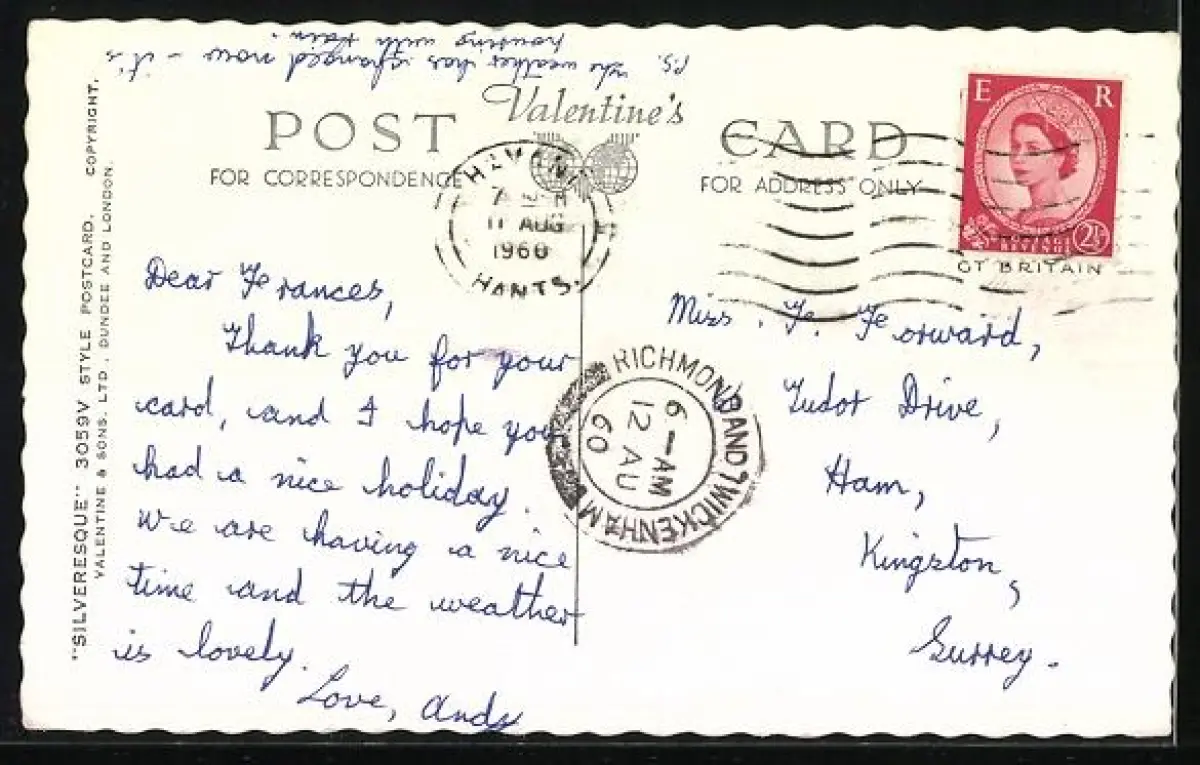 P.S. The weather has changed now - it's
pouring with rain.
Valentine's
POST CARD
FOR CORRESPONDENCE
FOR ADDRESS ONLY
"SILVERESQUE" 3059V STYLE POSTCARD. COPYRIGHT.
VALENTINE & SONS. LTD., DUNDEE AND LONDON.
11 AUG
1960
HANTS.
E R
POSTAGE
REVENUE
2½
GT BRITAIN
Dear Frances,
Thank you for your
card, and I hope you
had a nice holiday.
We are having a nice
time and the weather
is lovely.
Love, Andy
RICHMOND AND TWICKENHAM
6 - AM
12 AU
60
Miss. F. Forward,
Tudor Drive,
Ham,
Kingston,
Surrey.